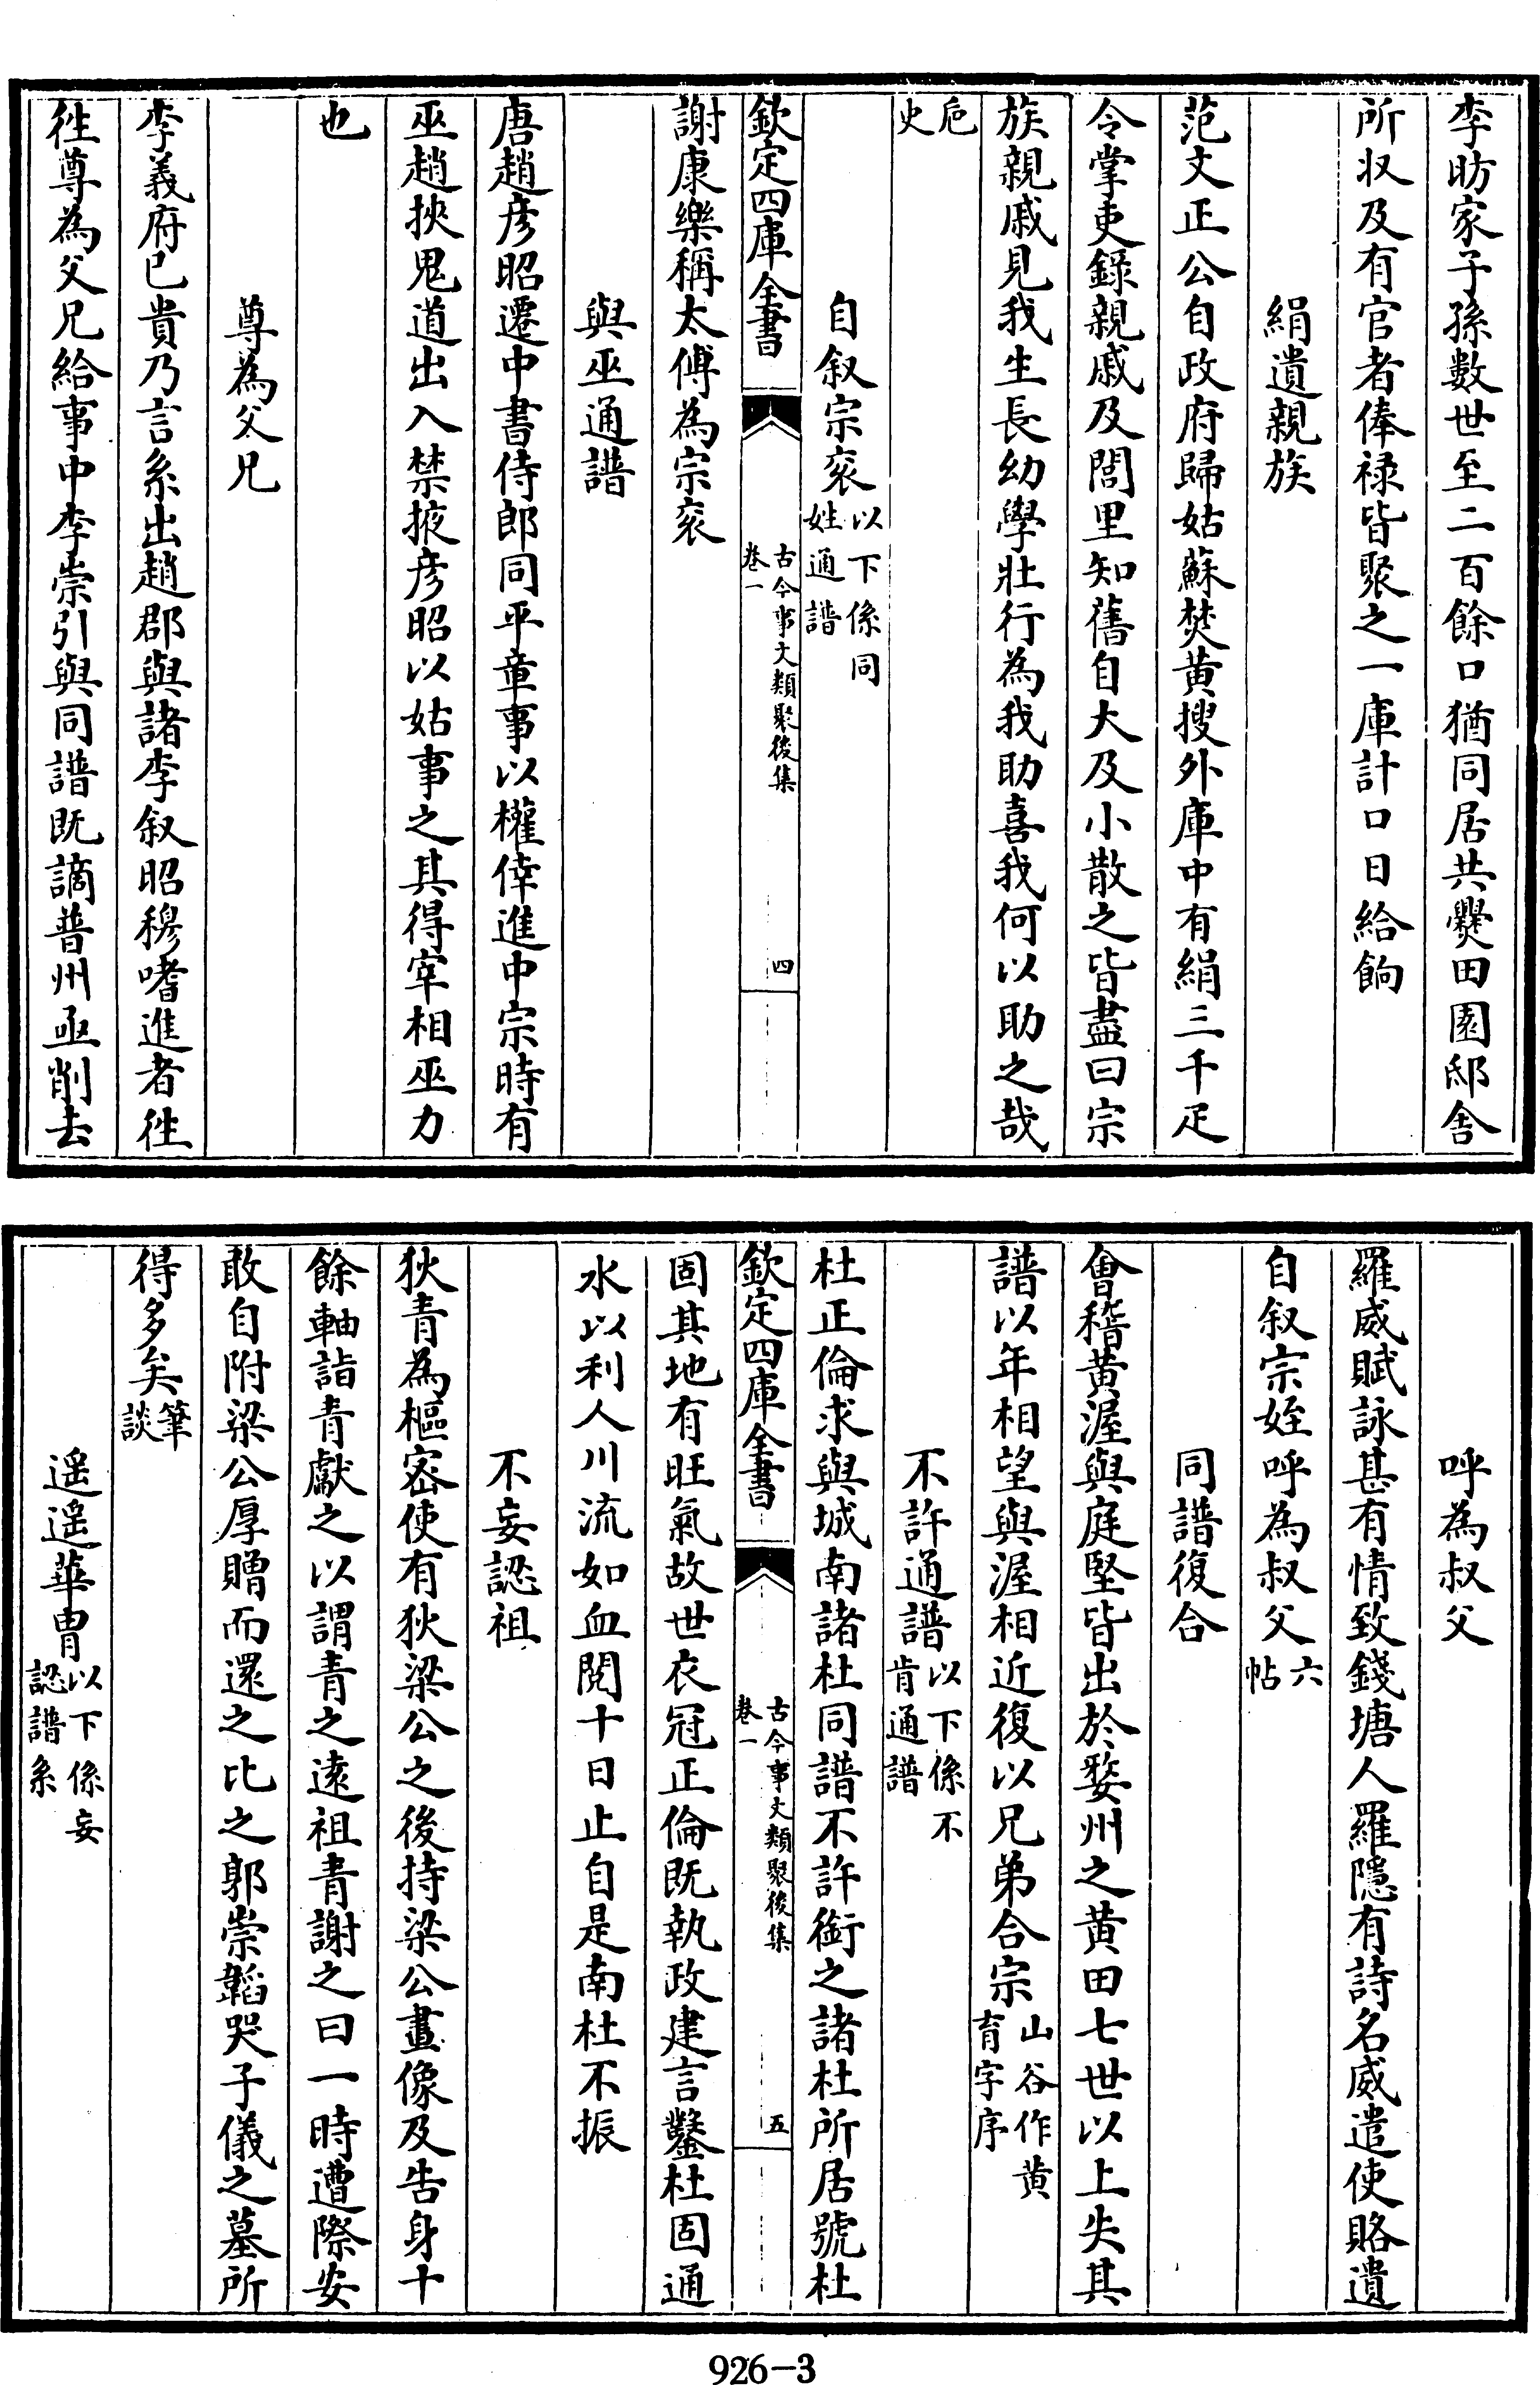 李昉家子孫數世至二百餘口猶同居共爨田園邸舎
所収及有官者俸祿皆聚之一庫計口日給餉
絹遺親族
范文正公自政府歸姑蘇焚黄搜外庫中有絹三千疋
令掌吏錄親戚及閭里知舊自大及小散之皆盡曰宗
族親戚見我生長幼學壯行為我助喜我何以助之哉
巵史
自叙宗衮以下係同姓通譜
欽定四庫全書
古今事文類聚後集
卷一
四
謝康樂稱太傅為宗衮
與巫通譜
唐趙彦昭遷中書侍郎同平章事以權倖進中宗時有
巫趙挾鬼道出入禁掖彦昭以姑事之其得宰相巫力
也
尊為父兄
李義府已貴乃言系出趙郡與諸李叙昭穆嗜進者徃
徃尊為父兄給事中李崇引與同譜既謫普州亟削去
呼為叔父
羅威賦詠甚有情致錢塘人羅隱有詩名威遣使賂遺
自叙宗姪呼為叔父六帖
同譜復合
會稽黄渥與庭堅皆出於婺州之黄田七世以上失其
譜以年相望與渥相近復以兄弟合宗山谷作黄育字序
不許通譜以下係不肯通譜
杜正倫求與城南諸杜同譜不許銜之諸杜所居號杜
欽定四庫全書
古今事文類聚後集
卷一
五
固其地有旺氣故世衣冠正倫既執政建言鑿杜固通
水以利人川流如血閱十日止自是南杜不振
不妄認祖
狄青為樞密使有狄梁公之後持梁公畫像及告身十
餘軸詣青獻之以謂青之遠祖青謝之曰一時遭際安
敢自附梁公厚贈而還之比之郭崇韜哭子儀之墓所
得多矣筆談
遥遥華胄以下係妄認譜系
926-3